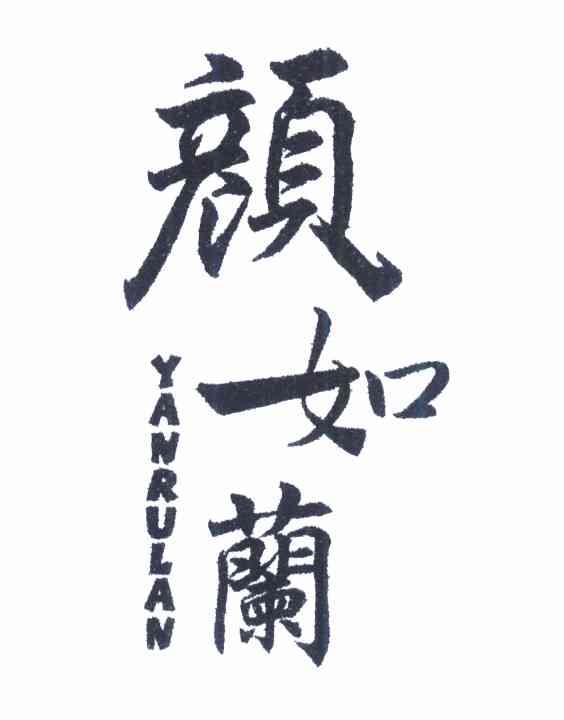 顏如蘭
YANRULAN